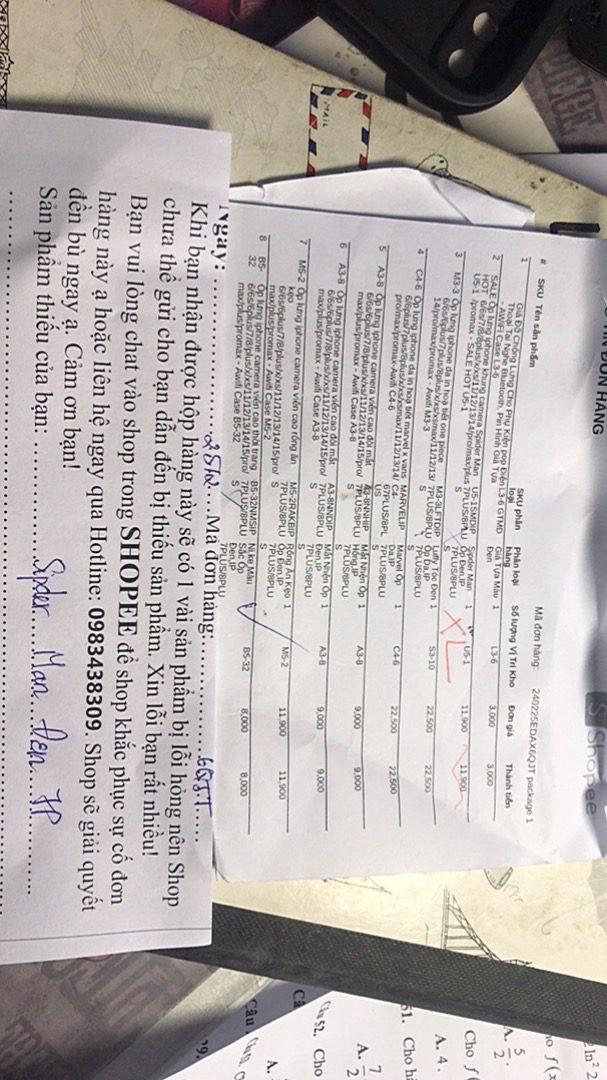 Shopee
ĐƠN HÀNG
Mã đơn hàng: 240225EDAX6QJT package 1
# SKU Tên sản phẩm SKU phân loại Phân loại hàng Số lượng Vị Trí Kho Đơn giá Thành tiền
1 Giá Đỡ Chống Lưng Cho Phụ Kiện pop Điện L3-6 GTMD Giá Tựa Màu 1 L3-6 3,000 3,000
Thoại Tai Nghe Bluetooth, Pin Hình Giá Tựa Đen
AWIFI Case L3-6
2 SALE Ốp lưng iphone khung camera Spider Man U5-1SMDIP Spider Man 1 U5-1 11,900 11,900
HOT 6/6s/7/8/plus/x/xs/11/12/13/14/pro/max/plus 7PLUS/8PLU Ốp Đen,IP
U5-1 /promax - SALE HOT U5-1 S 7PLUS/8PLU
S
XL
3 M3-3 Ốp lưng iphone da in hoạ tiết one piece M3-3LFTDIP Luffy Tóc Đen 1 S3-10 22,500 22,500
6/6s/6plus/7plus/8plus/x/xs/xsmax/11/12/13/ 7PLUS/8PLU Ốp Da,IP
14/pro/max/promax - Awifi M3-3 S
4 C4-6 Ốp lưng iphone da in hoạ tiết marvel x vans MARVELIP Marvel Ốp 1 C4-6 22,500 22,500
6/6plus/7plus/8plus/x/xs/xsmax/11/12/13/14/ C4- Da,IP
pro/max/promax-Awifi C4-6 67PLUS/8PL 7PLUS/8PLU
US S
5 A3-8 Ốp lưng iphone camera viền cao đôi mắt A3-8NNHIP Mã Nhện Ốp 1 A3-8 9,000 9,000
6/6s/6plus/7/8/plus/x/xs/11/12/13/14/15/pro/ 7PLUS/8PLU Hồng,IP
max/plus/promax - Awifi Case A3-8 S 7PLUS/8PLU
S
6 A3-8 Ốp lưng iphone camera viền cao đôi mắt A3-8NNDIP Mã Nhện Ốp 1 A3-8 9,000 9,000
6/6s/6plus/7/8/plus/x/xs/11/12/13/14/15/pro/ 7PLUS/8PLU Đen,IP
max/plus/promax - Awifi Case A3-8 S 7PLUS/8PLU
S
7 M5-2 Ốp lưng iphone camera viền cao rồng ăn M5-2RAKBIP Rồng Ăn Kẹo 1 M5-2 11,900 11,900
kẹo 7PLUS/8PLU Ốp Đen,IP
6/6s/6plus/7/8/plus/x/xs/11/12/13/14/15/pro/ S 7PLUS/8PLU
max/plus/promax - Awifi Case M5-2 S
8 B5-32 Ốp lưng iphone camera viền cao thời trang B5-32NMSIP 1 B5-32 8,000 8,000
6/6s/6plus/7/8/plus/x/xs/11/12/13/14/15/pro/ 7PLUS/8PLU Sắc Ốp
max/plus/promax - Awifi Case B5-32 S Đen,IP
7PLUS/8PLU
S
Ngày: 25/2 Mã đơn hàng: 6QJT
Khi bạn nhận được hộp hàng này sẽ có 1 vài sản phẩm bị lỗi hỏng nên Shop
chưa thể gửi cho bạn dẫn đến bị thiếu sản phẩm. Xin lỗi bạn rất nhiều!
Bạn vui lòng chat vào shop trong SHOPEE để shop khắc phục sự cố đơn
hàng này ạ hoặc liên hệ ngay qua Hotline: 0983438309. Shop sẽ giải quyết
đền bù ngay ạ. Cảm ơn bạn!
Sản phẩm thiếu của bạn: Spider Man Đen 7P
MAIL
ln² 2
Cho f(x
A. 5/2
Cho f(
A. 4.
51. Cho
A. 7/2
Câu 52. Cho
A.
Câu